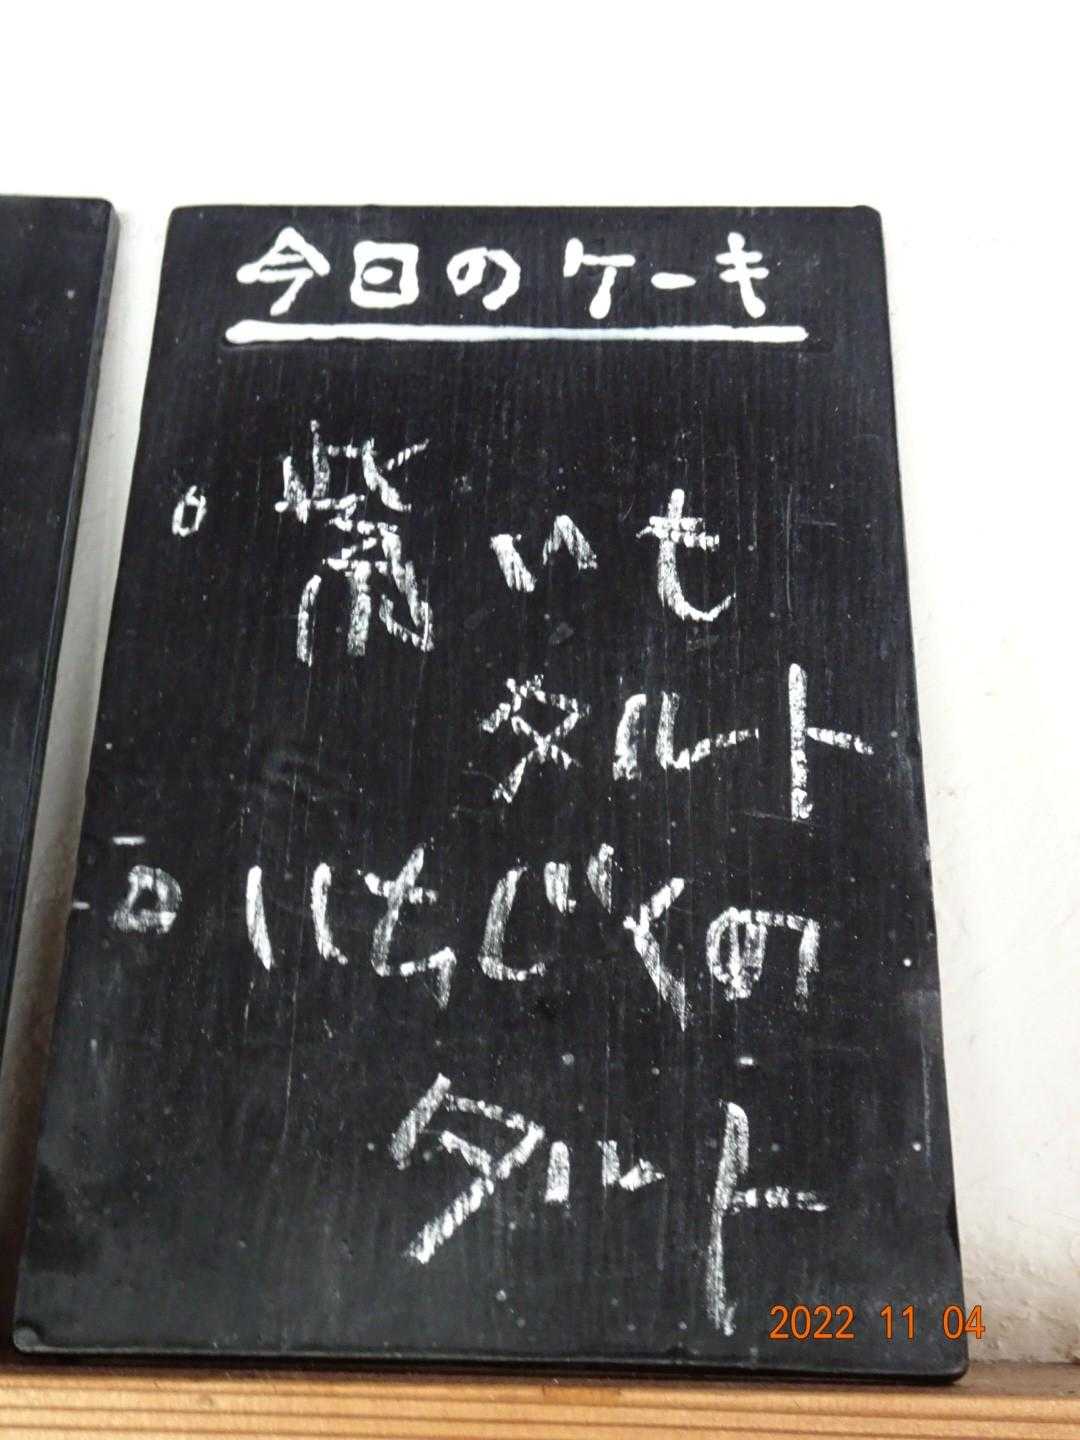 今日のケーキ
○紫いも
タルト
○いちじくの
タルト
2022 11 04